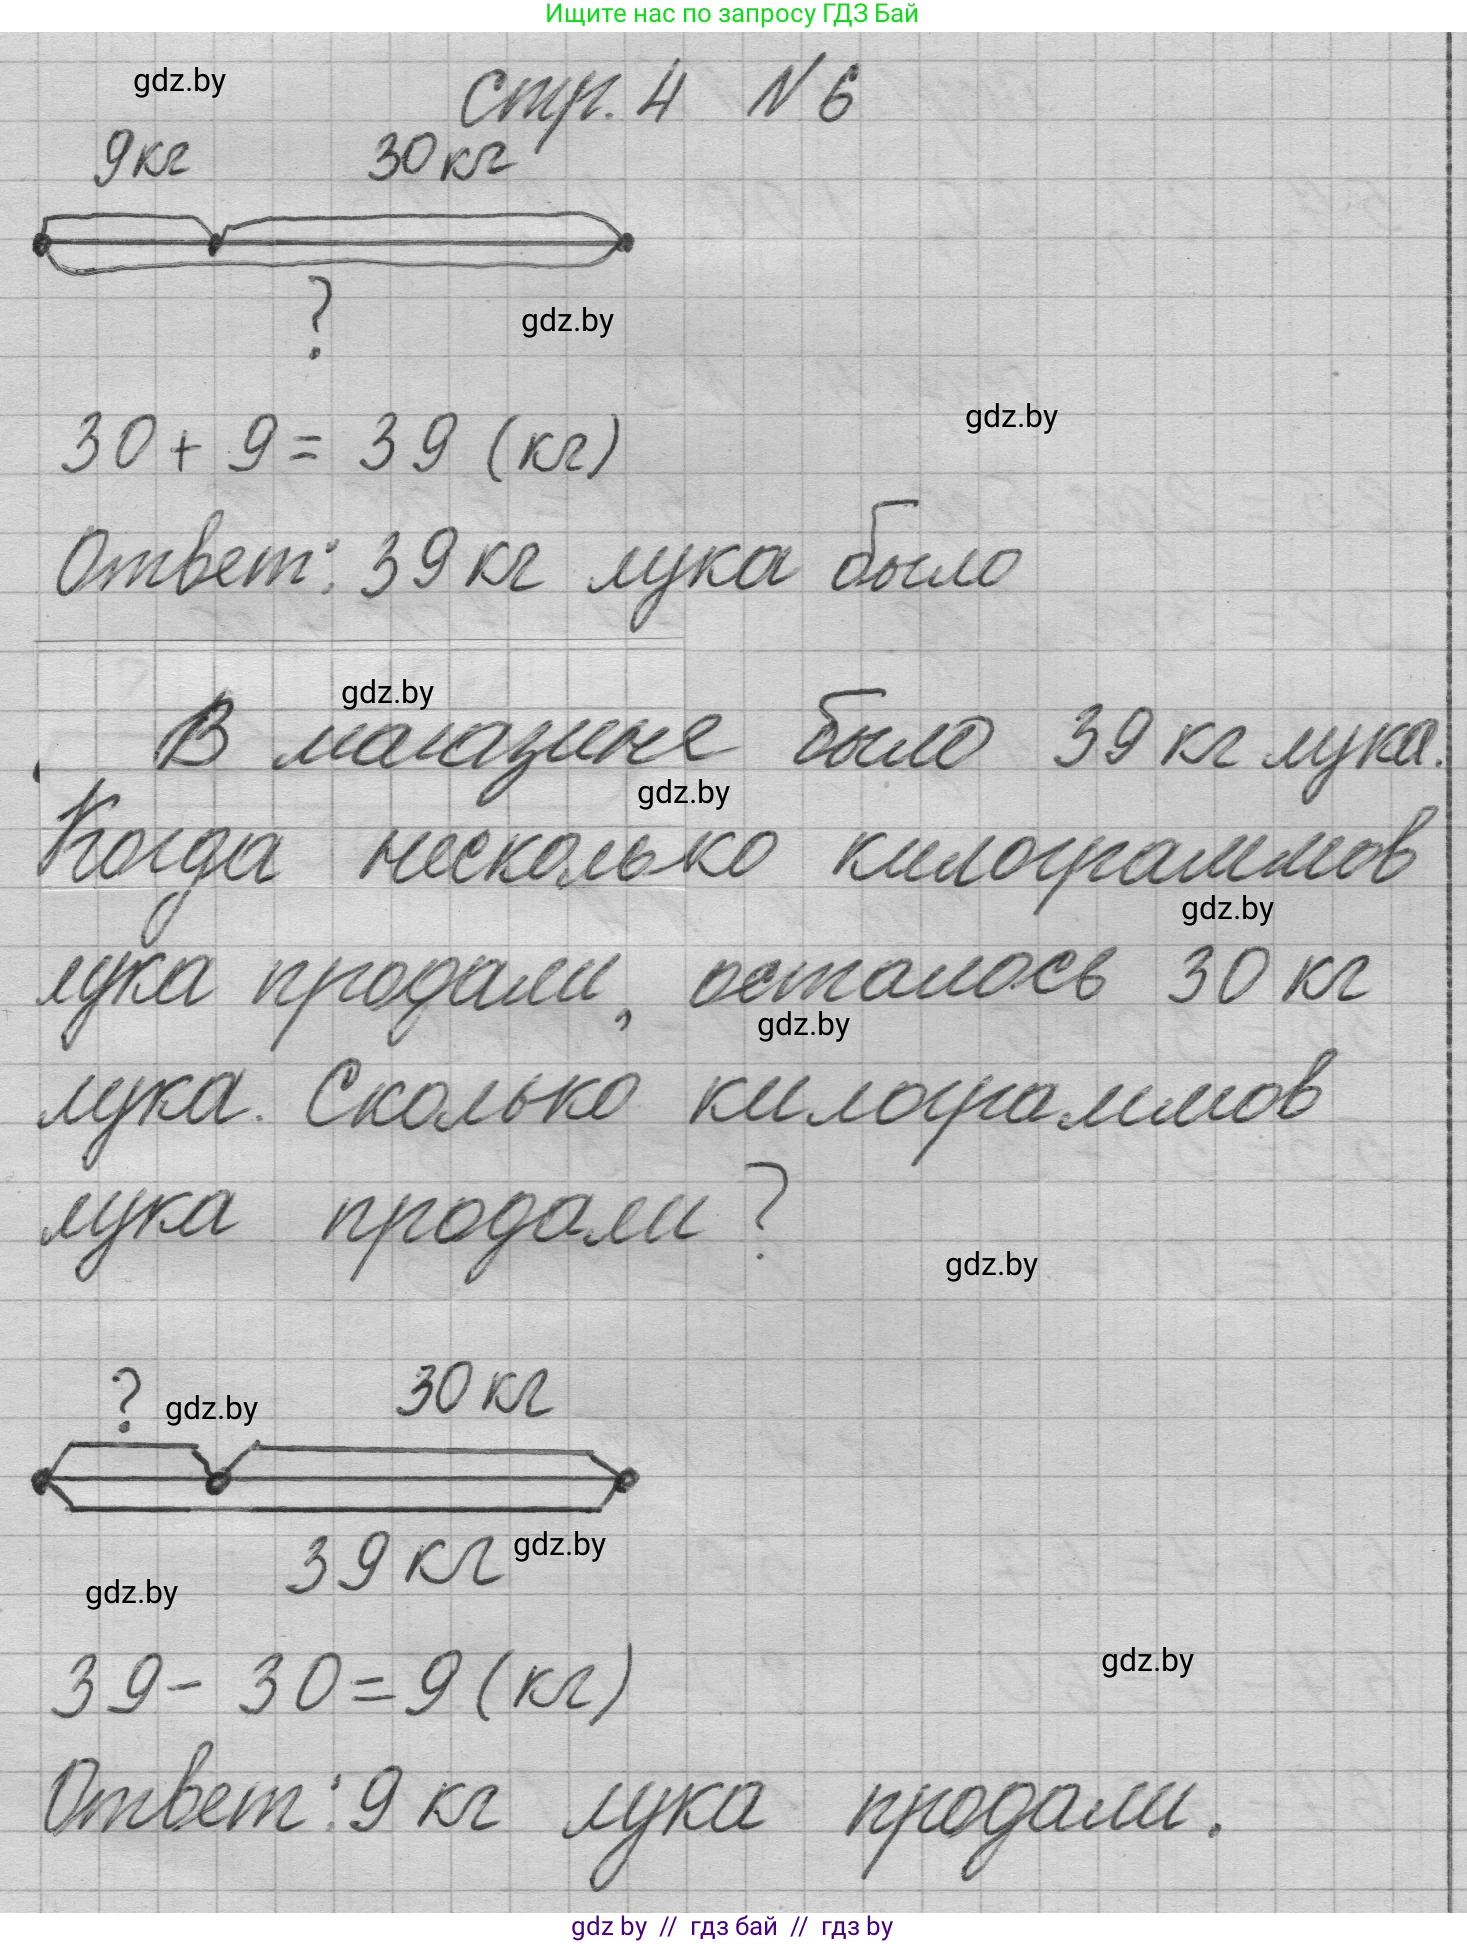 Ищите нас по запросу ГДЗ Бай
gdz.by
Стр. 4 N 6
9 кг 30 кг
?
gdz.by
gdz.by
30 + 9 = 39 (кг)
Ответ: 39 кг лука было
gdz.by
В магазине было 39 кг лука.
gdz.by
Когда несколько килограммов
gdz.by
лука продали, осталось 30 кг
gdz.by
лука. Сколько килограммов
лука продали?
gdz.by
? gdz.by 30 кг
39 кг gdz.by
gdz.by
39 - 30 = 9 (кг)
gdz.by
Ответ: 9 кг лука продали.
gdz by // гдз бай // гдз by